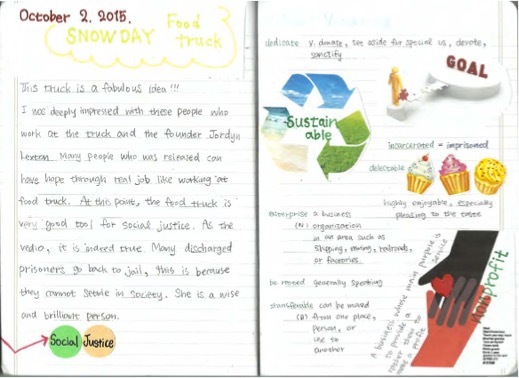 October 2. 2015.
SNOWDAY Food Truck
This truck is a fabulous idea !!!
I was deeply impressed with these people who
work at the truck and the founder Jordyn
Lexton. Many people who was released can
have hope through real job like working at
food truck. At this point, the food truck is
very good tool for social justice. As the
vedio, it is indeed true. Many discharged
prisoners go back to jail, this is because
they cannot settle in society. She is a wise
and brilliant person.
Social Justice
dedicate v. donate, set aside for special us, devote,
sanctify
GOAL
Sustain
able
incarcerated = imprisoned
delectable
highly enjoyable, especially
pleasing to the taste
enterprise a business
(N) organization
in an area such as
shipping, mining, railroads,
or factories.
be rooted generally speaking
transferable can be moved
from one place,
person, or
use to
another
A business whose main purpose is
to provide a service
rather than to
make a profit
nonprofit